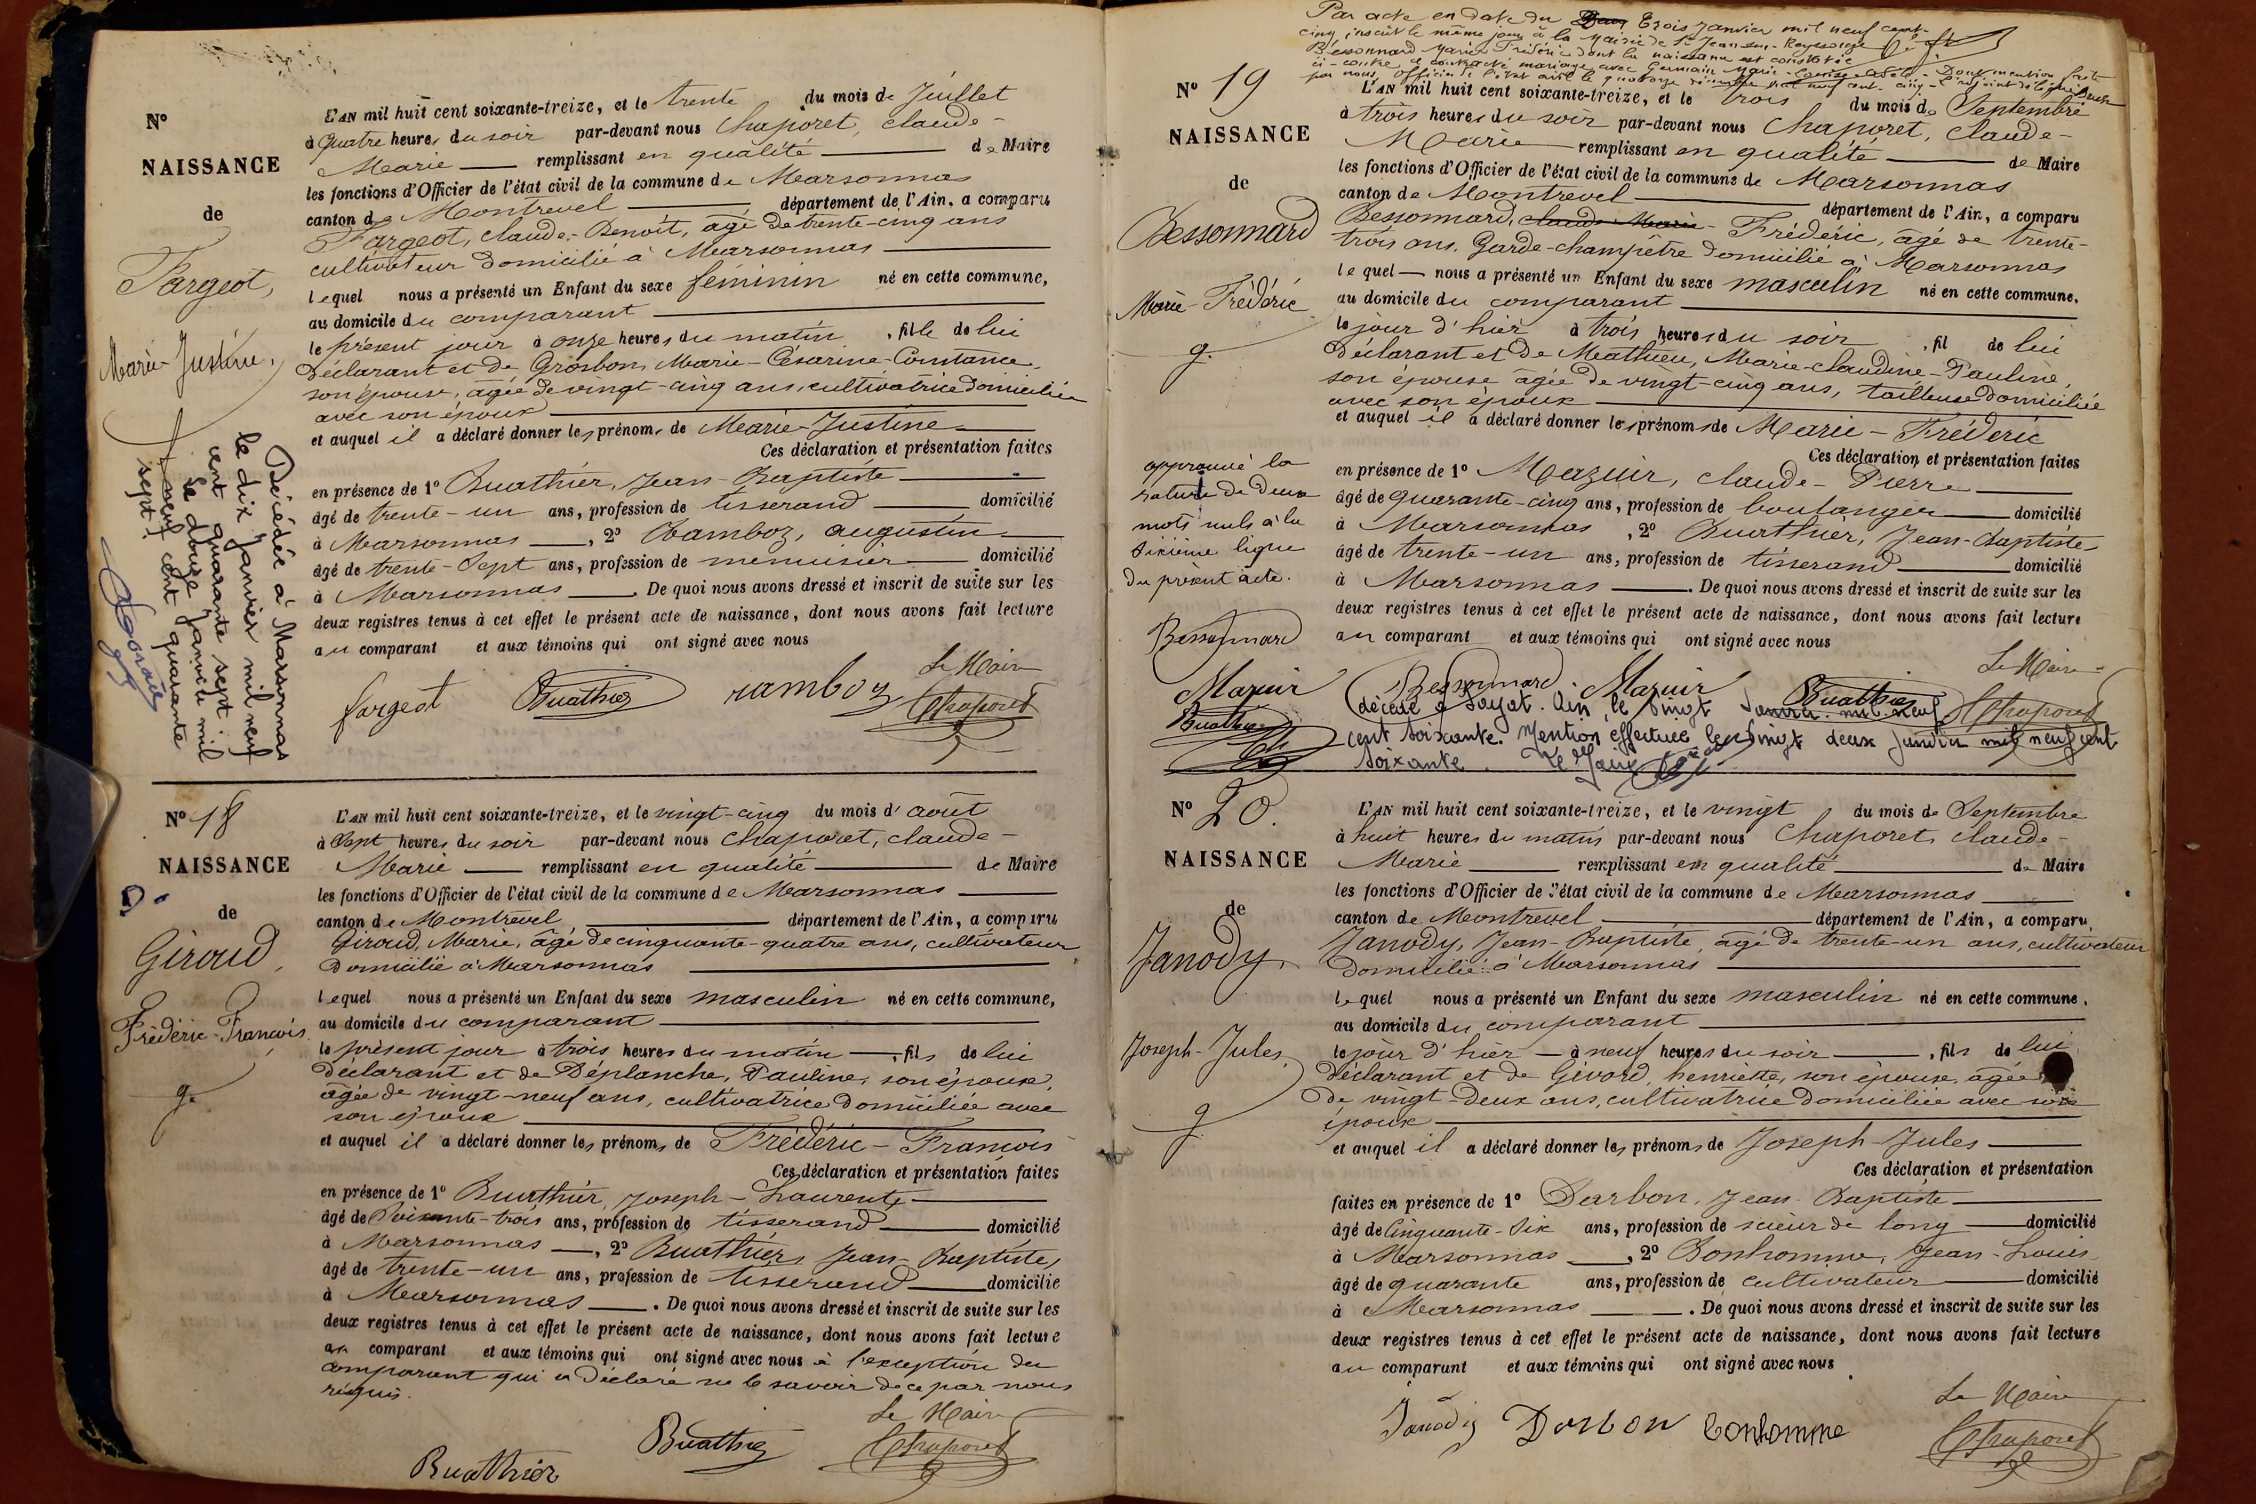 N°
NAISSANCE
de
Fargeot,
Marie-Justine,
L'AN mil huit cent soixante-treize, et le trente du mois de Juillet
à quatre heures du soir par-devant nous Chaporet, Claude-
Marie remplissant en qualité de Maire
les fonctions d'Officier de l'état civil de la commune de Marsonnas
canton de Montrevel département de l'Ain, a comparu
Fargeot, Claude-Benoit, âgé de trente-cinq ans
cultivateur domicilié à Marsonnas
lequel nous a présenté un Enfant du sexe féminin né en cette commune,
au domicile du comparant
le présent jour à onze heures du matin, fille de lui
déclarant et de Grosbon, Marie-Césarine-Constance,
son épouse, âgée de vingt-cinq ans, cultivatrice domiciliée
avec son époux
et auquel il a déclaré donner les prénoms de Marie-Justine
Ces déclaration et présentation faites
en présence de 1° Buathier, Jean-Baptiste
âgé de trente-un ans, profession de tisserand domicilié
à Marsonnas, 2° Chamboz, augustin
âgé de trente-Sept ans, profession de menuisier domicilié
à Marsonnas. De quoi nous avons dressé et inscrit de suite sur les
deux registres tenus à cet effet le présent acte de naissance, dont nous avons fait lecture
au comparant et aux témoins qui ont signé avec nous
Le Maire
fargeot Buathier Chaporet
Décédée à Marsonnas
le dix janvier mil neuf
cent quarante sept.
Le douze janvier mil
neuf cent quarante
sept.
N° 18
NAISSANCE
D.
de
Giroud,
Frédéric-François
g.
L'AN mil huit cent soixante-treize, et le vingt-cinq du mois d'août
à Sept heures du soir par-devant nous Chaporet, Claude-
Marie remplissant en qualité de Maire
les fonctions d'Officier de l'état civil de la commune de Marsonnas
canton de Montrevel département de l'Ain, a comparu
Giroud, Marie, âgé de cinquante-quatre ans, cultivateur
domicilié à Marsonnas
lequel nous a présenté un Enfant du sexe masculin né en cette commune,
au domicile du comparant
le présent jour à trois heures du matin, fils de lui
déclarant et de Déplanche, Pauline, son épouse,
âgée de vingt-neuf ans, cultivatrice domiciliée avec
son époux
et auquel il a déclaré donner les prénoms de Frédéric-François
Ces déclaration et présentation faites
en présence de 1° Buathier, Joseph-Laurent,
âgé de Soixante-trois ans, profession de tisserand domicilié
à Marsonnas, 2° Buathier, Jean-Baptiste,
âgé de trente-un ans, profession de tisserand domicilié
à Marsonnas. De quoi nous avons dressé et inscrit de suite sur les
deux registres tenus à cet effet le présent acte de naissance, dont nous avons fait lecture
au comparant et aux témoins qui ont signé avec nous à l'exception du
comparant qui a déclaré ne le savoir de ce par nous
requis.
Le Maire
Buathier Buathier Chaporet
Par acte en date du Trois Janvier mil neuf cent-
cinq inscrit le même jour à la Mairie de St Jean-sur-Reyssouze
Bessonnard Marie-Frédéric dont la naissance est constatée
ci-contre a contracté mariage avec Germain Marie-Louise-Adèle - Dont mention faite
par nous, Officier de l'état civil le quatorze
N° 19
NAISSANCE
de
Bessonnard
Marie-Frédéric
g.
approuvé la
rature de deux
mots nuls à la
sixième ligne
du présent acte.
Bessonnard
Mazuir
Buathier
L'AN mil huit cent soixante-treize, et le trois du mois de Septembre
à trois heures du soir par-devant nous Chaporet, Claude-
Marie remplissant en qualité de Maire
les fonctions d'Officier de l'état civil de la commune de Marsonnas
canton de Montrevel département de l'Ain, a comparu
Bessonnard, Claude-Marie-Frédéric, âgé de trente-
trois ans, Garde-champêtre domicilié à Marsonnas
lequel nous a présenté un Enfant du sexe masculin né en cette commune,
au domicile du comparant
le jour d'hier à trois heures du soir, fil de lui
déclarant et de Mathieu, Marie-Claudine-Pauline,
son épouse âgée de vingt-cinq ans, tailleuse domiciliée
avec son époux
et auquel il a déclaré donner les prénoms de Marie-Fréderic
Ces déclaration et présentation faites
en présence de 1° Mazuir, Claude-Pierre
âgé de quarante-cinq ans, profession de boulanger domicilié
à Marsonnas, 2° Buathier, Jean-Baptiste
âgé de trente-un ans, profession de tisserand domicilié
à Marsonnas. De quoi nous avons dressé et inscrit de suite sur les
deux registres tenus à cet effet le présent acte de naissance, dont nous avons fait lecture
au comparant et aux témoins qui ont signé avec nous
Le Maire
Bessonnard Mazuir Buathier Chaporet
décédé à Jayat. Ain, le vingt Janvier mil neuf
cent soixante. Mention effectuée le vingt deux Janvier mil neuf cent
soixante. Le Maire
N° 20.
NAISSANCE
de
Janody,
Joseph-Jules,
g
L'AN mil huit cent soixante-treize, et le vingt du mois de Septembre
à huit heures du matin par-devant nous Chaporet, Claude-
Marie remplissant en qualité de Maire
les fonctions d'Officier de l'état civil de la commune de Marsonnas
canton de Montrevel département de l'Ain, a comparu,
Janody, Jean-Baptiste, âgé de trente-un ans, cultivateur
domicilié à Marsonnas
lequel nous a présenté un Enfant du sexe masculin né en cette commune,
au domicile du comparant
le jour d'hier à neuf heures du soir, fils de lui
déclarant et de Givord, henriette, son épouse, âgée
de vingt-deux ans, cultivatrice domiciliée avec son
époux
et auquel il a déclaré donner les prénoms de Joseph-Jules
Ces déclaration et présentation
faites en présence de 1° Darbon, Jean-Baptiste
âgé de Cinquante-Six ans, profession de scieur de long domicilié
à Marsonnas, 2° Bonhomme, Jean-Louis
âgé de quarante ans, profession de cultivateur domicilié
à Marsonnas. De quoi nous avons dressé et inscrit de suite sur les
deux registres tenus à cet effet le présent acte de naissance, dont nous avons fait lecture
au comparant et aux témoins qui ont signé avec nous
Le Maire
Janody Darbon bonhomme Chaporet